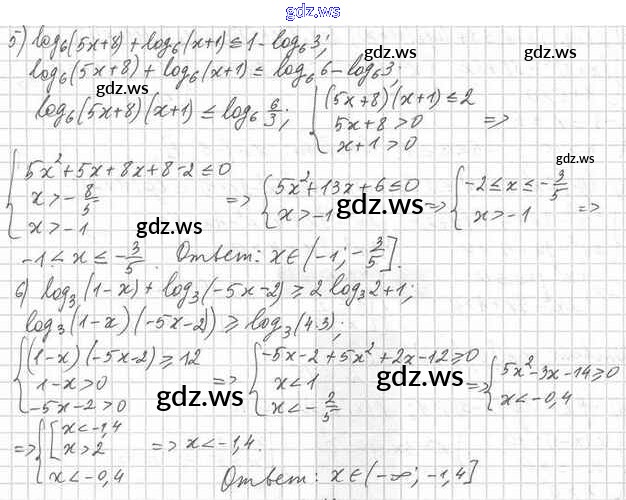 gdz.ws
5) log₆(5x+8) + log₆(x+1) ≤ 1 - log₆3;
gdz.ws
log₆(5x+8) + log₆(x+1) ≤ log₆6 - log₆3;
gdz.ws
log₆(5x+8)(x+1) ≤ log₆ 6/3; { (5x+8)(x+1) ≤ 2
5x+8 > 0 =>
x+1 > 0
gdz.ws
gdz.ws
{ 5x²+5x+8x+8-2 ≤ 0
x > -8/5
x > -1
=> { 5x²+13x+6 ≤ 0
x > -1
=> { -2 ≤ x ≤ -3/5
x > -1 =>
gdz.ws
gdz.ws
-1 < x ≤ -3/5. Ответ: x∈(-1; -3/5].
6) log₃(1-x) + log₃(-5x-2) ≥ 2log₃2+1;
gdz.ws
log₃(1-x)(-5x-2)) ≥ log₃(4·3);
{ (1-x)(-5x-2) ≥ 12
1-x > 0
-5x-2 > 0
=> { -5x-2+5x²+2x-12 ≥ 0
x < 1
x < -2/5
=> { 5x²-3x-14 ≥ 0
x < -0,4
gdz.ws
gdz.ws
=> { [ x < -1,4
x > 2
x < -0,4
=> x < -1,4.
Ответ: x∈(-∞; -1,4]
gdz.ws
gdz.ws